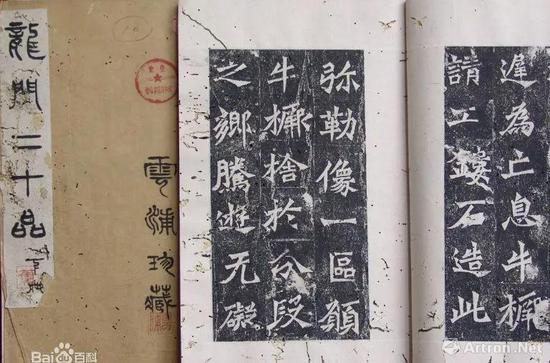 遲為亡息牛橛
請工鏤石造此
弥勒像一區願
牛橛捨於分段
之鄉騰遊无礙
雲浦珍藏
龍門二十品
Baidu百科
Artron.Net